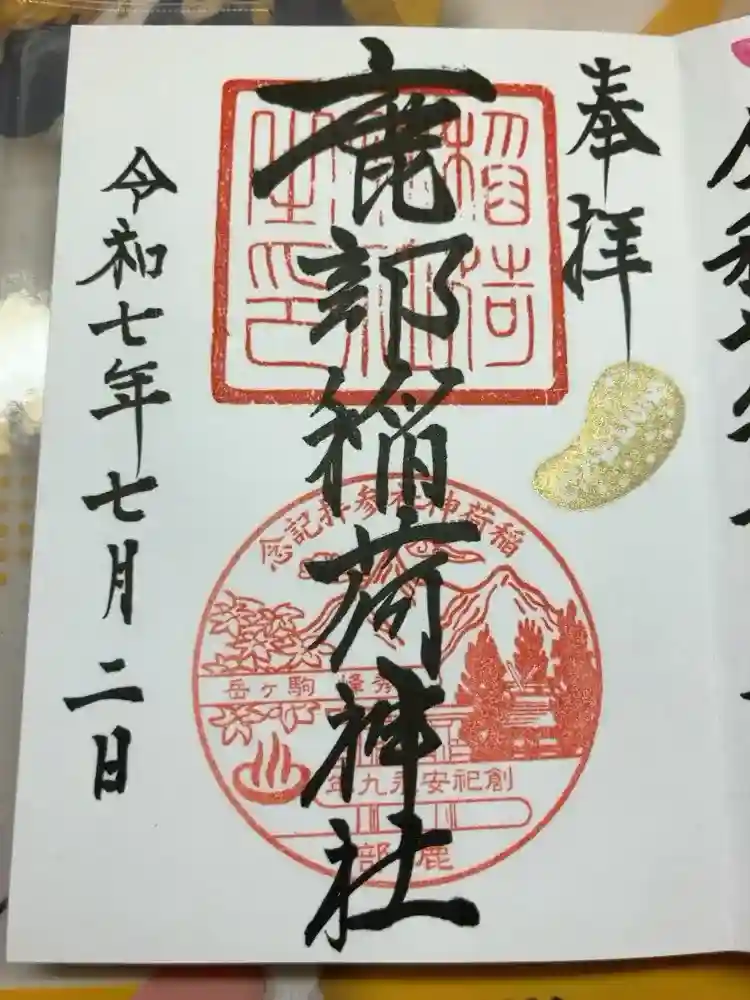 奉拝
鹿部稲荷神社
令和七年七月二日
稲荷
之印
稲荷神社参拝記念
秀峰 駒ヶ岳
創祀安永九年
鹿部